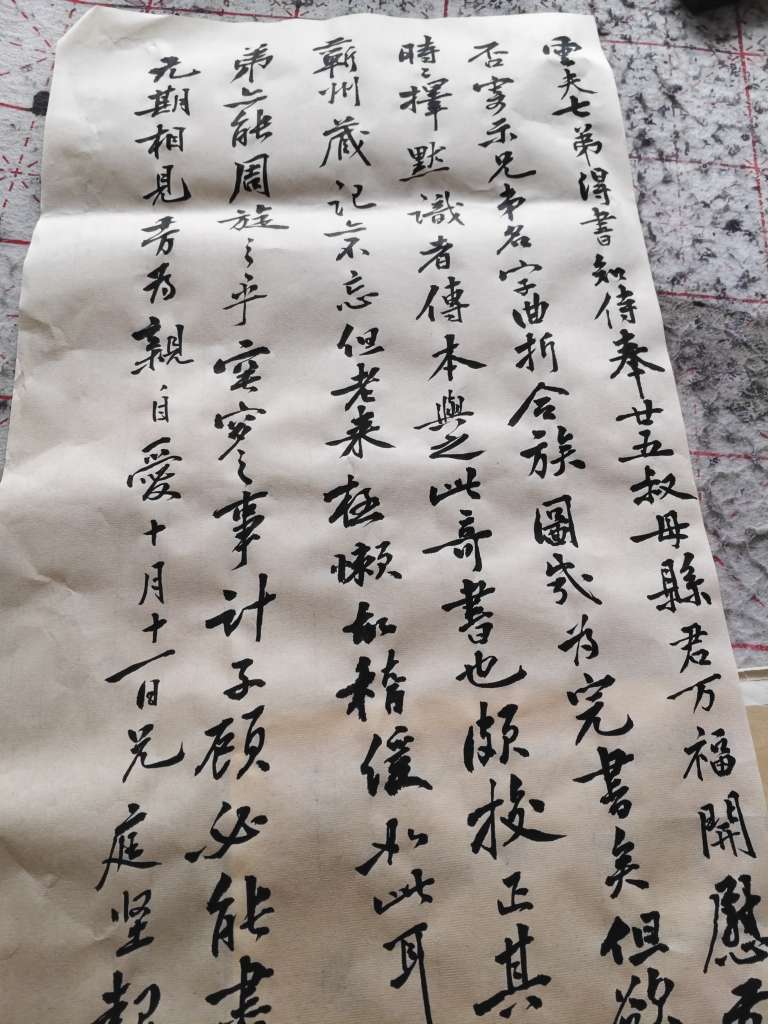 雲夫七弟得書知侍奉廿五叔母縣君万福開慰
否寄示兄弟名字曲折合族圖幾為完書矣但欲
時時擇默識者傳本與之此奇書也頗校正其
蘄州藏記亦不忘但老來極懶故稽緩如此耳
弟亦能周旋之乎室家之事計子顧必能書
元期相見労為親自愛十月十一日兄庭坚